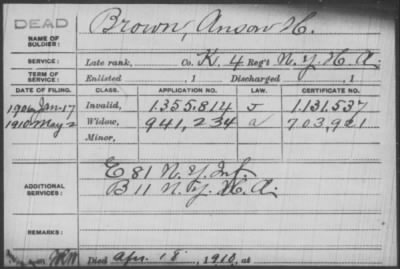 DEAD
Brown, Anson H.
NAME OF SOLDIER:
SERVICE: Late rank, Co. K, 4 Reg't N.Y.H.A.
TERM OF SERVICE: Enlisted , 1 Discharged , 1
DATE OF FILING. CLASS. APPLICATION NO. LAW. CERTIFICATE NO.
1906 Jan-17 Invalid, 1.355.814 J 1.131.537
1910 May-2 Widow, 941,234 a 703,921
Minor,
E 81 N.Y. Inf.
ADDITIONAL SERVICES: B 11 N.Y. H.A.
REMARKS:
Died Apr. 18, 1910, at